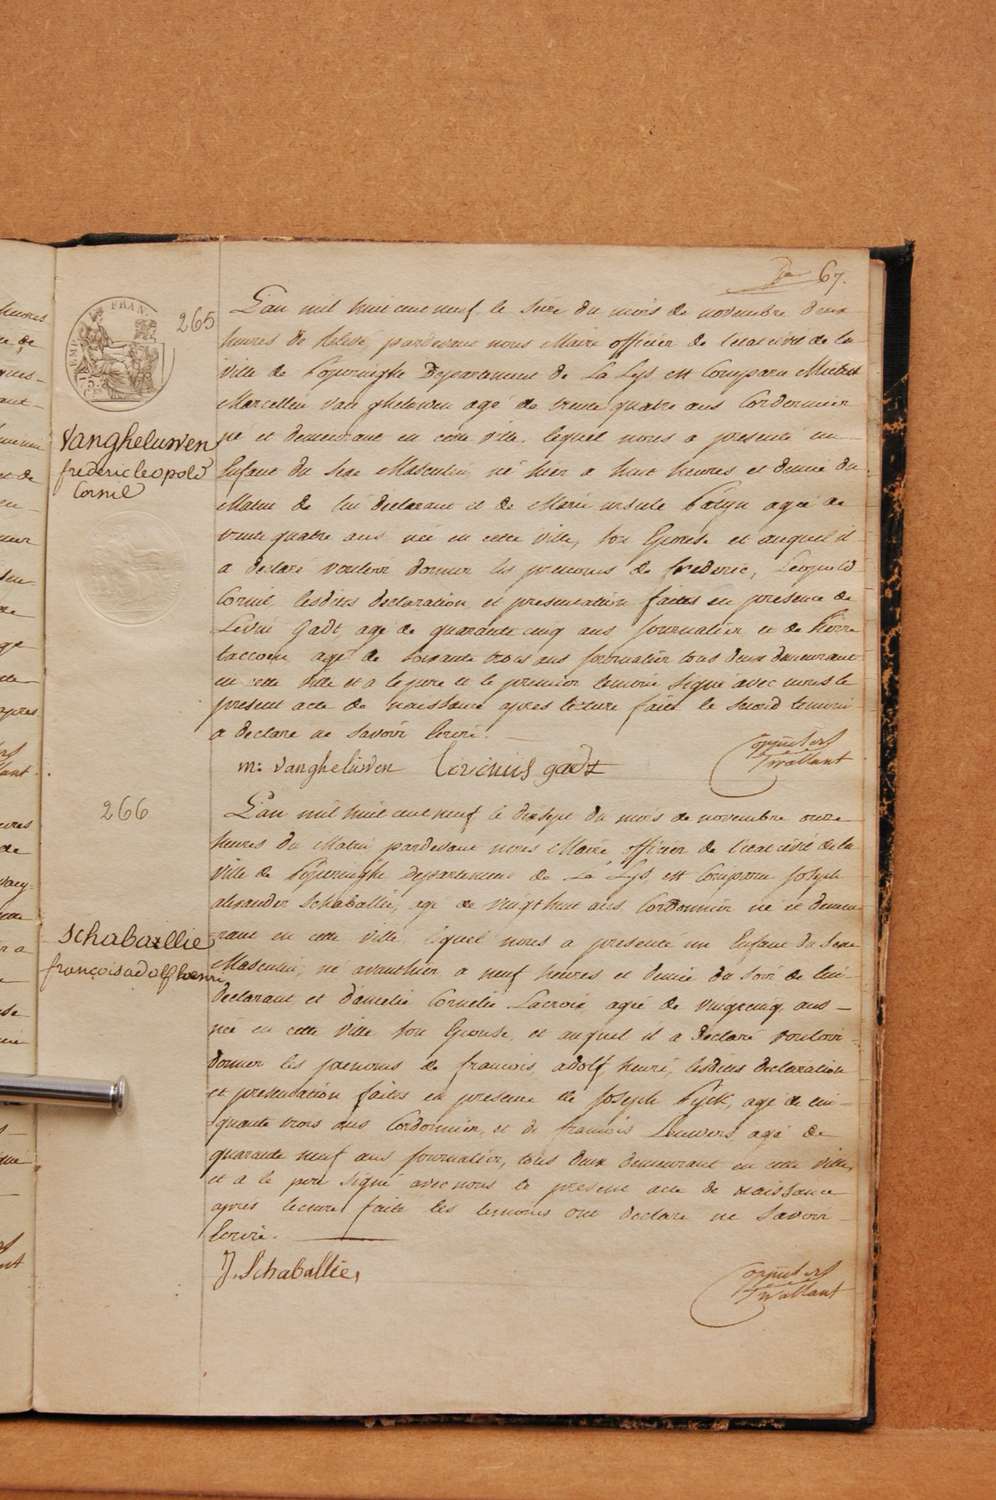 67.
265
L'an mil huit cent neuf le seize du mois de novembre deux
heures de relevé, pardevant nous Maire officier de l'etat civil de la
ville de Poperinghe Departement de La Lys est Comparu Michel
Marcellin Vangheluwen agé de trente quatre ans Cordonnier
né et demeurant en cette ville, lequel nous a presenté un
Enfant du sexe Masculin, né hier a huit heures et demie du
Matin de lui declarant et de Marie ursule agée de
trente quatre ans née en cette ville, son Epouse et auquel il
a declaré vouloir donner les prenoms de frederic, Leopold
Cornil, lesdites declaration et presentation faites en presence de
Levin Gadt, agé de quarante cinq ans journalier et de Pierre
agé de soixante trois ans journalier tous deux demeurant
en cette ville et a le pere et le premier temoin signé avec nous le
present acte de naissance apres lecture faite le second temoin
a declaré ne savoir Ecrire.
Vangheluwen
frederic leopold
Cornil
m: vangheluwen Levinus gadt
Twallant
266
L'an mil huit cent neuf le dix sept du mois de novembre onze
heures du Matin pardevant nous Maire officier de l'etat civil de la
ville de Poperinghe Departement de La Lys, est Comparu Joseph
alexander Schaballie, agé de vingt huit ans Cordonnier né et demeu
rant en cette ville, lequel nous a presenté un Enfant du Sexe
Masculin, né avanthier a neuf heures et demie du soir de lui
declarant et d'amelie Cornelie Lacroix agée de vingt cinq ans
née en cette ville son Epouse, et auquel il a declaré vouloir
donner les prenoms de francois, adolf henri, lesdites declaration
et presentation faites en presence de Joseph Pyck, agé de cin
quante trois ans Cordonnier, et de francois Leuwers agé de
quarante neuf ans journalier, tous deux demeurant en cette ville,
et a le pere signé avec nous le present acte de naissance
aprés lecture faite les temoins ont declare ne Savoir
Ecrire.
Schaballie
françois adolf henri
J. Schaballie,
Twallant